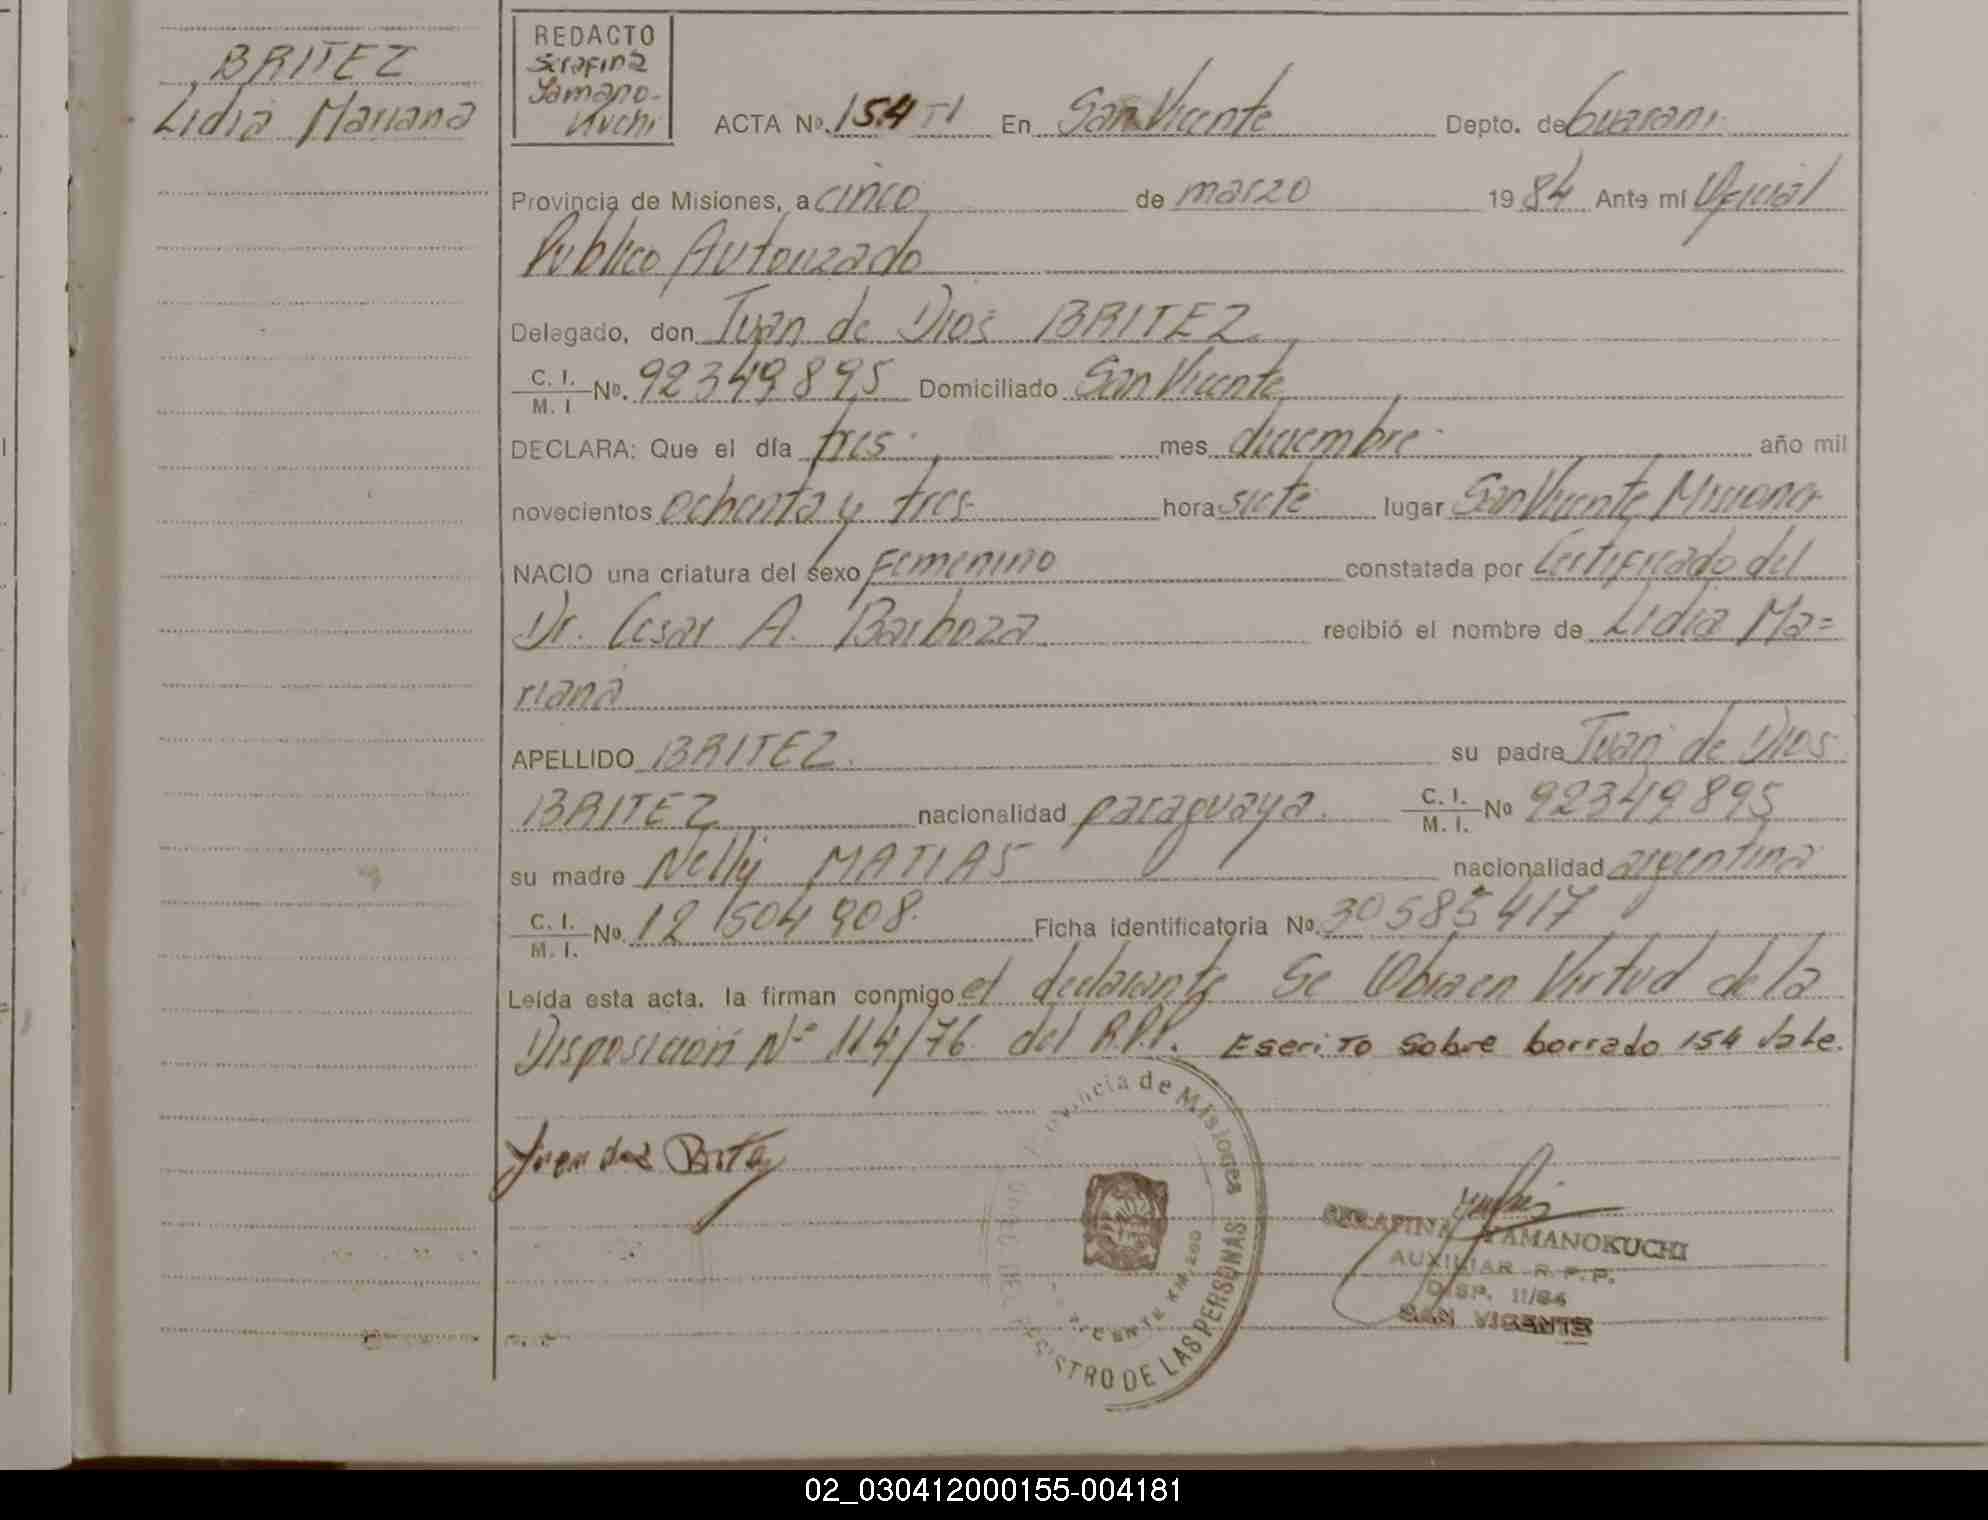 BRITEZ
Lidia Mariana
REDACTO
Serafina
Yamano-
Kuchi
ACTA Nº. 154 TI En San Vicente Depto. de Guarani
Provincia de Misiones, a cinco de marzo 1984 Ante mí Oficial
Publico Autorizado
Delegado, don Juan de Dios BRITEZ
C. I. M. I Nº. 92349895 Domiciliado San Vicente
DECLARA: Que el día tres mes diciembre año mil
novecientos ochenta y tres hora siete lugar San Vicente Misiones
NACIO una criatura del sexo Femenino constatada por Certificado del
Dr. Cesar A. Barboza recibió el nombre de Lidia Ma=
riana
APELLIDO BRITEZ su padre Juan de Dios
BRITEZ nacionalidad paraguaya. C. I. M. I. Nº 92349895
su madre Nelly MATIAS nacionalidad argentina
C. I. M. I. Nº. 12 504 908. Ficha identificatoria Nº. 30 585 417
Leída esta acta, la firman conmigo el declarante Se Obra en Virtud de la
Disposición Nº 114/76 del R.P.P. Escrito sobre borrado 154 Vale.
Provincia de Misiones
REGISTRO DE LAS PERSONAS
VICENTE KM. 200
SERAFINA YAMANOKUCHI
AUXILIAR R.P.P.
DISP. 11/84
SAN VICENTE
02_030412000155-004181